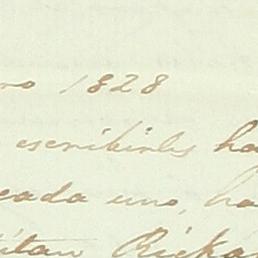 ro 1828
escribirles ha
cada uno, ha
itan Ricka